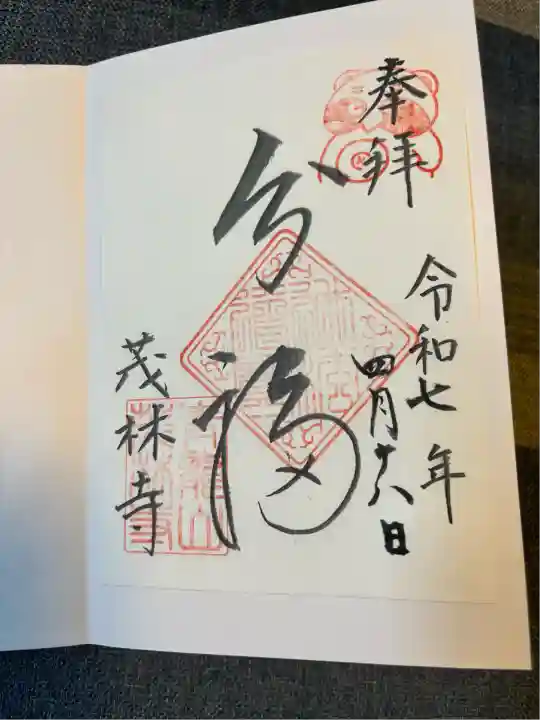 奉拝
令和七年
四月十八日
分福
茂林寺